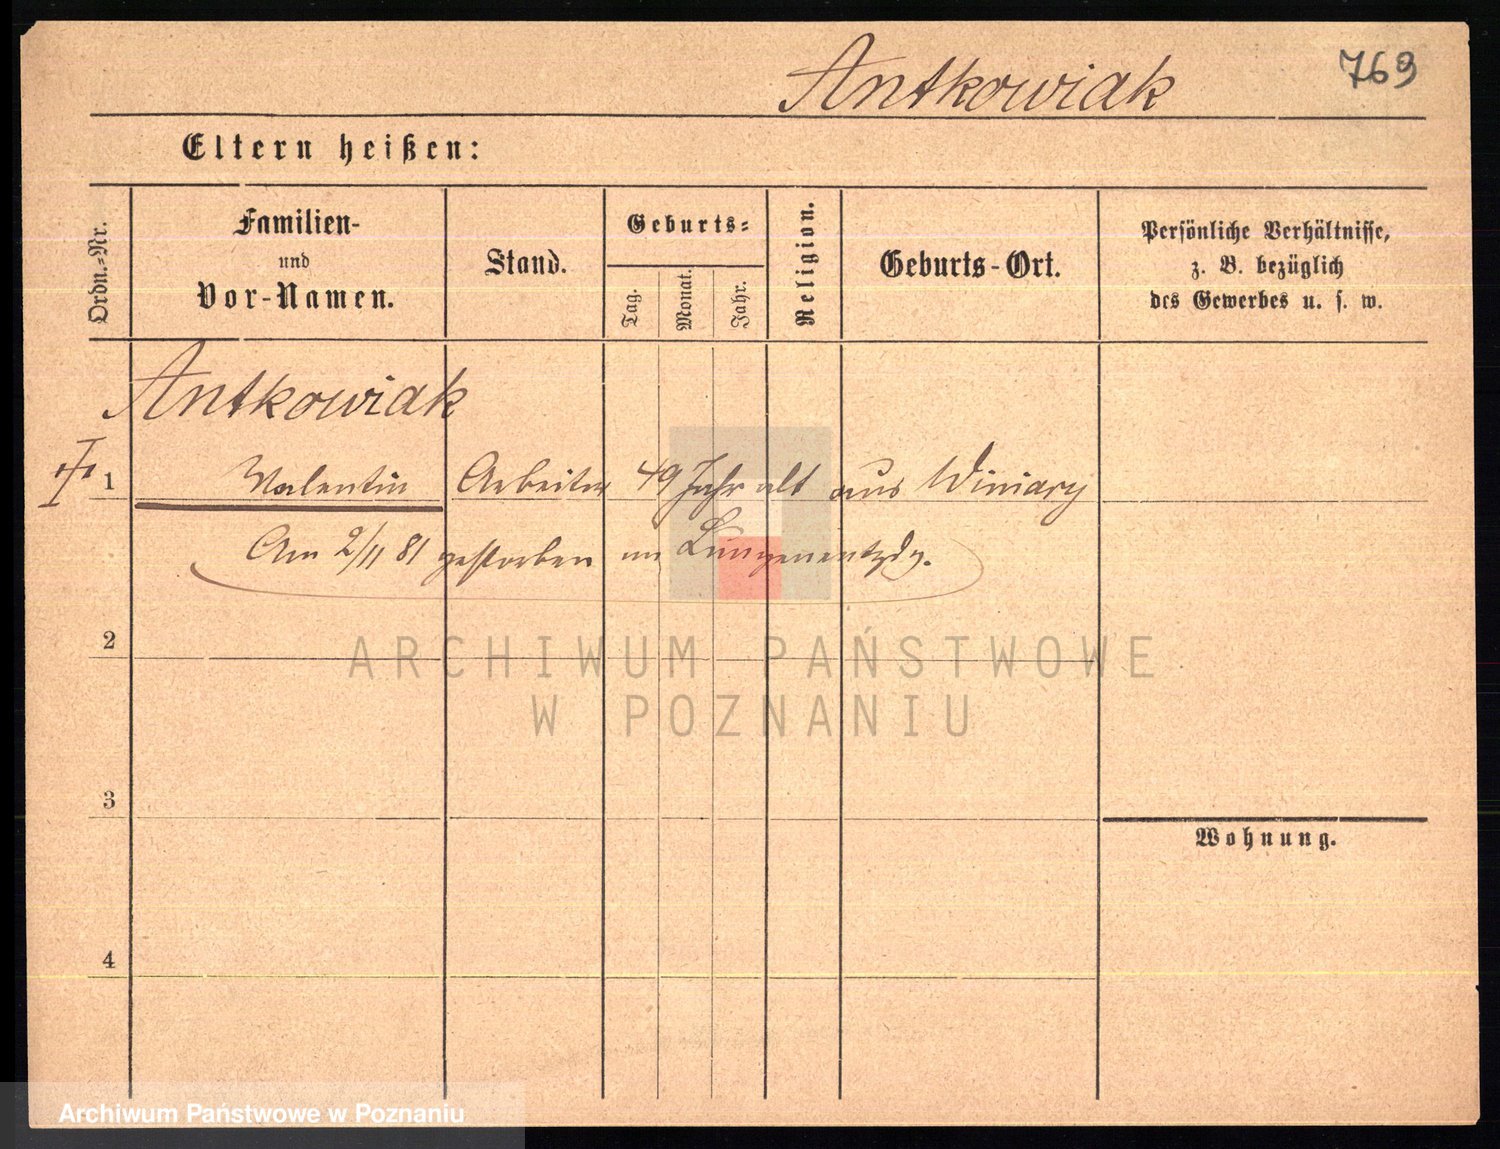 Antkowiak 769
Eltern heißen:
Ordn.-Nr.
Familien-
und
Vor-Namen.
Stand.
Geburts-
Tag.
Monat.
Jahr.
Religion.
Geburts-Ort.
Persönliche Verhältnisse,
z. B. bezüglich
des Gewerbes u. s. w.
Antkowiak
1 Valentin Arbeiter 49 Jahr alt aus Winiary
Am 2/11 81 gestorben an Lungenentzdg.
2
ARCHIWUM PAŃSTWOWE
W POZNANIU
3
Wohnung.
4
Archiwum Państwowe w Poznaniu